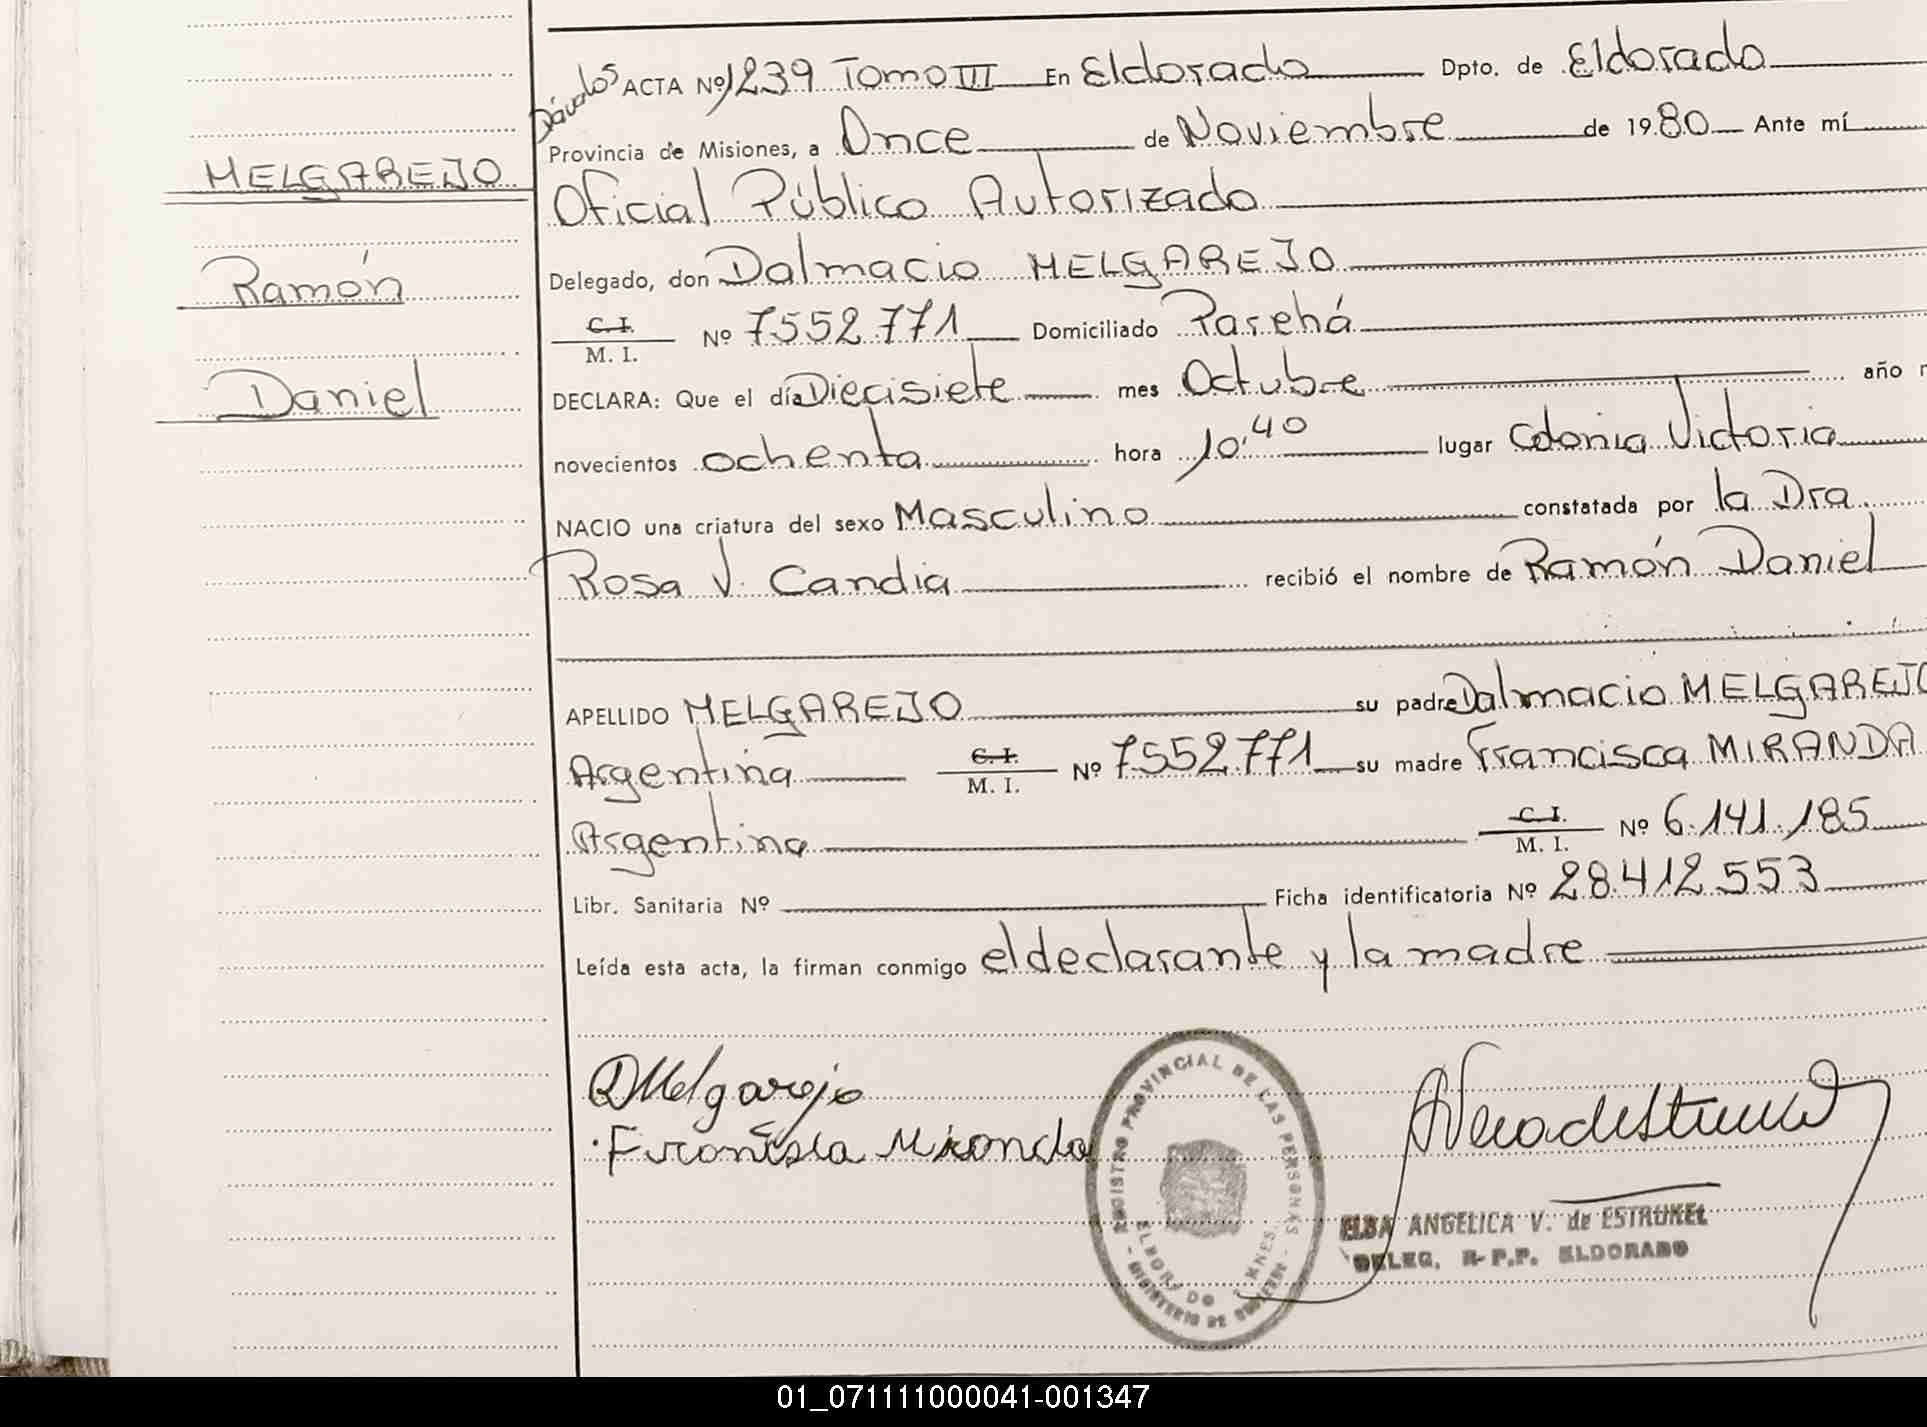 MELGAREJO
Ramón
Daniel
Dávalos ACTA Nº 1239 Tomo III En Eldorado Dpto. de Eldorado
Provincia de Misiones, a Once de Noviembre de 1980 Ante mí
Oficial Público Autorizado
Delegado, don Dalmacio MELGAREJO
C. I.
M. I. Nº 7552.771 Domiciliado Parehá
DECLARA: Que el día Diecisiete mes Octubre año
novecientos ochenta hora 10.40 lugar Colonia Victoria
NACIO una criatura del sexo Masculino constatada por la Dra.
Rosa V. Candia recibió el nombre de Ramón Daniel
APELLIDO MELGAREJO su padre Dalmacio MELGAREJO
Argentina C. I. M. I. Nº 7552.771 su madre Francisca MIRANDA
Argentina C. I. M. I. Nº 6.141.185
Libr. Sanitaria Nº Ficha identificatoria Nº 28.412.553
Leída esta acta, la firman conmigo el declarante y la madre
DMelgarejo
Francisca Miranda
REGISTRO PROVINCIAL DE LAS PERSONAS
ELDORADO MNES.
MINISTERIO DE GOBIERNO
ELBA ANGELICA V. de ESTRUKEL
DELEG. R.P.P. ELDORADO
01_071111000041-001347